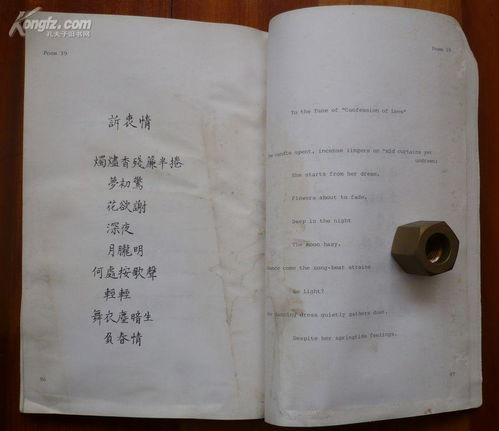 Kongfz.com
孔夫子旧书网
Poem 39
訴衷情
燭燼香殘簾半捲
夢初驚
花欲謝
深夜
月朧明
何處按歌聲
輕輕
舞衣塵暗生
負春情
Poem 39
To the Tune of "Confession of Love"
candle spent, incense lingers on 'mid curtains yet
She starts from her dream,
Flowers about to fade,
Deep in the night
The moon hazy.
come the song-beat strains
So light?
dancing dress quietly gathers dust,
Despite her springtide feelings.